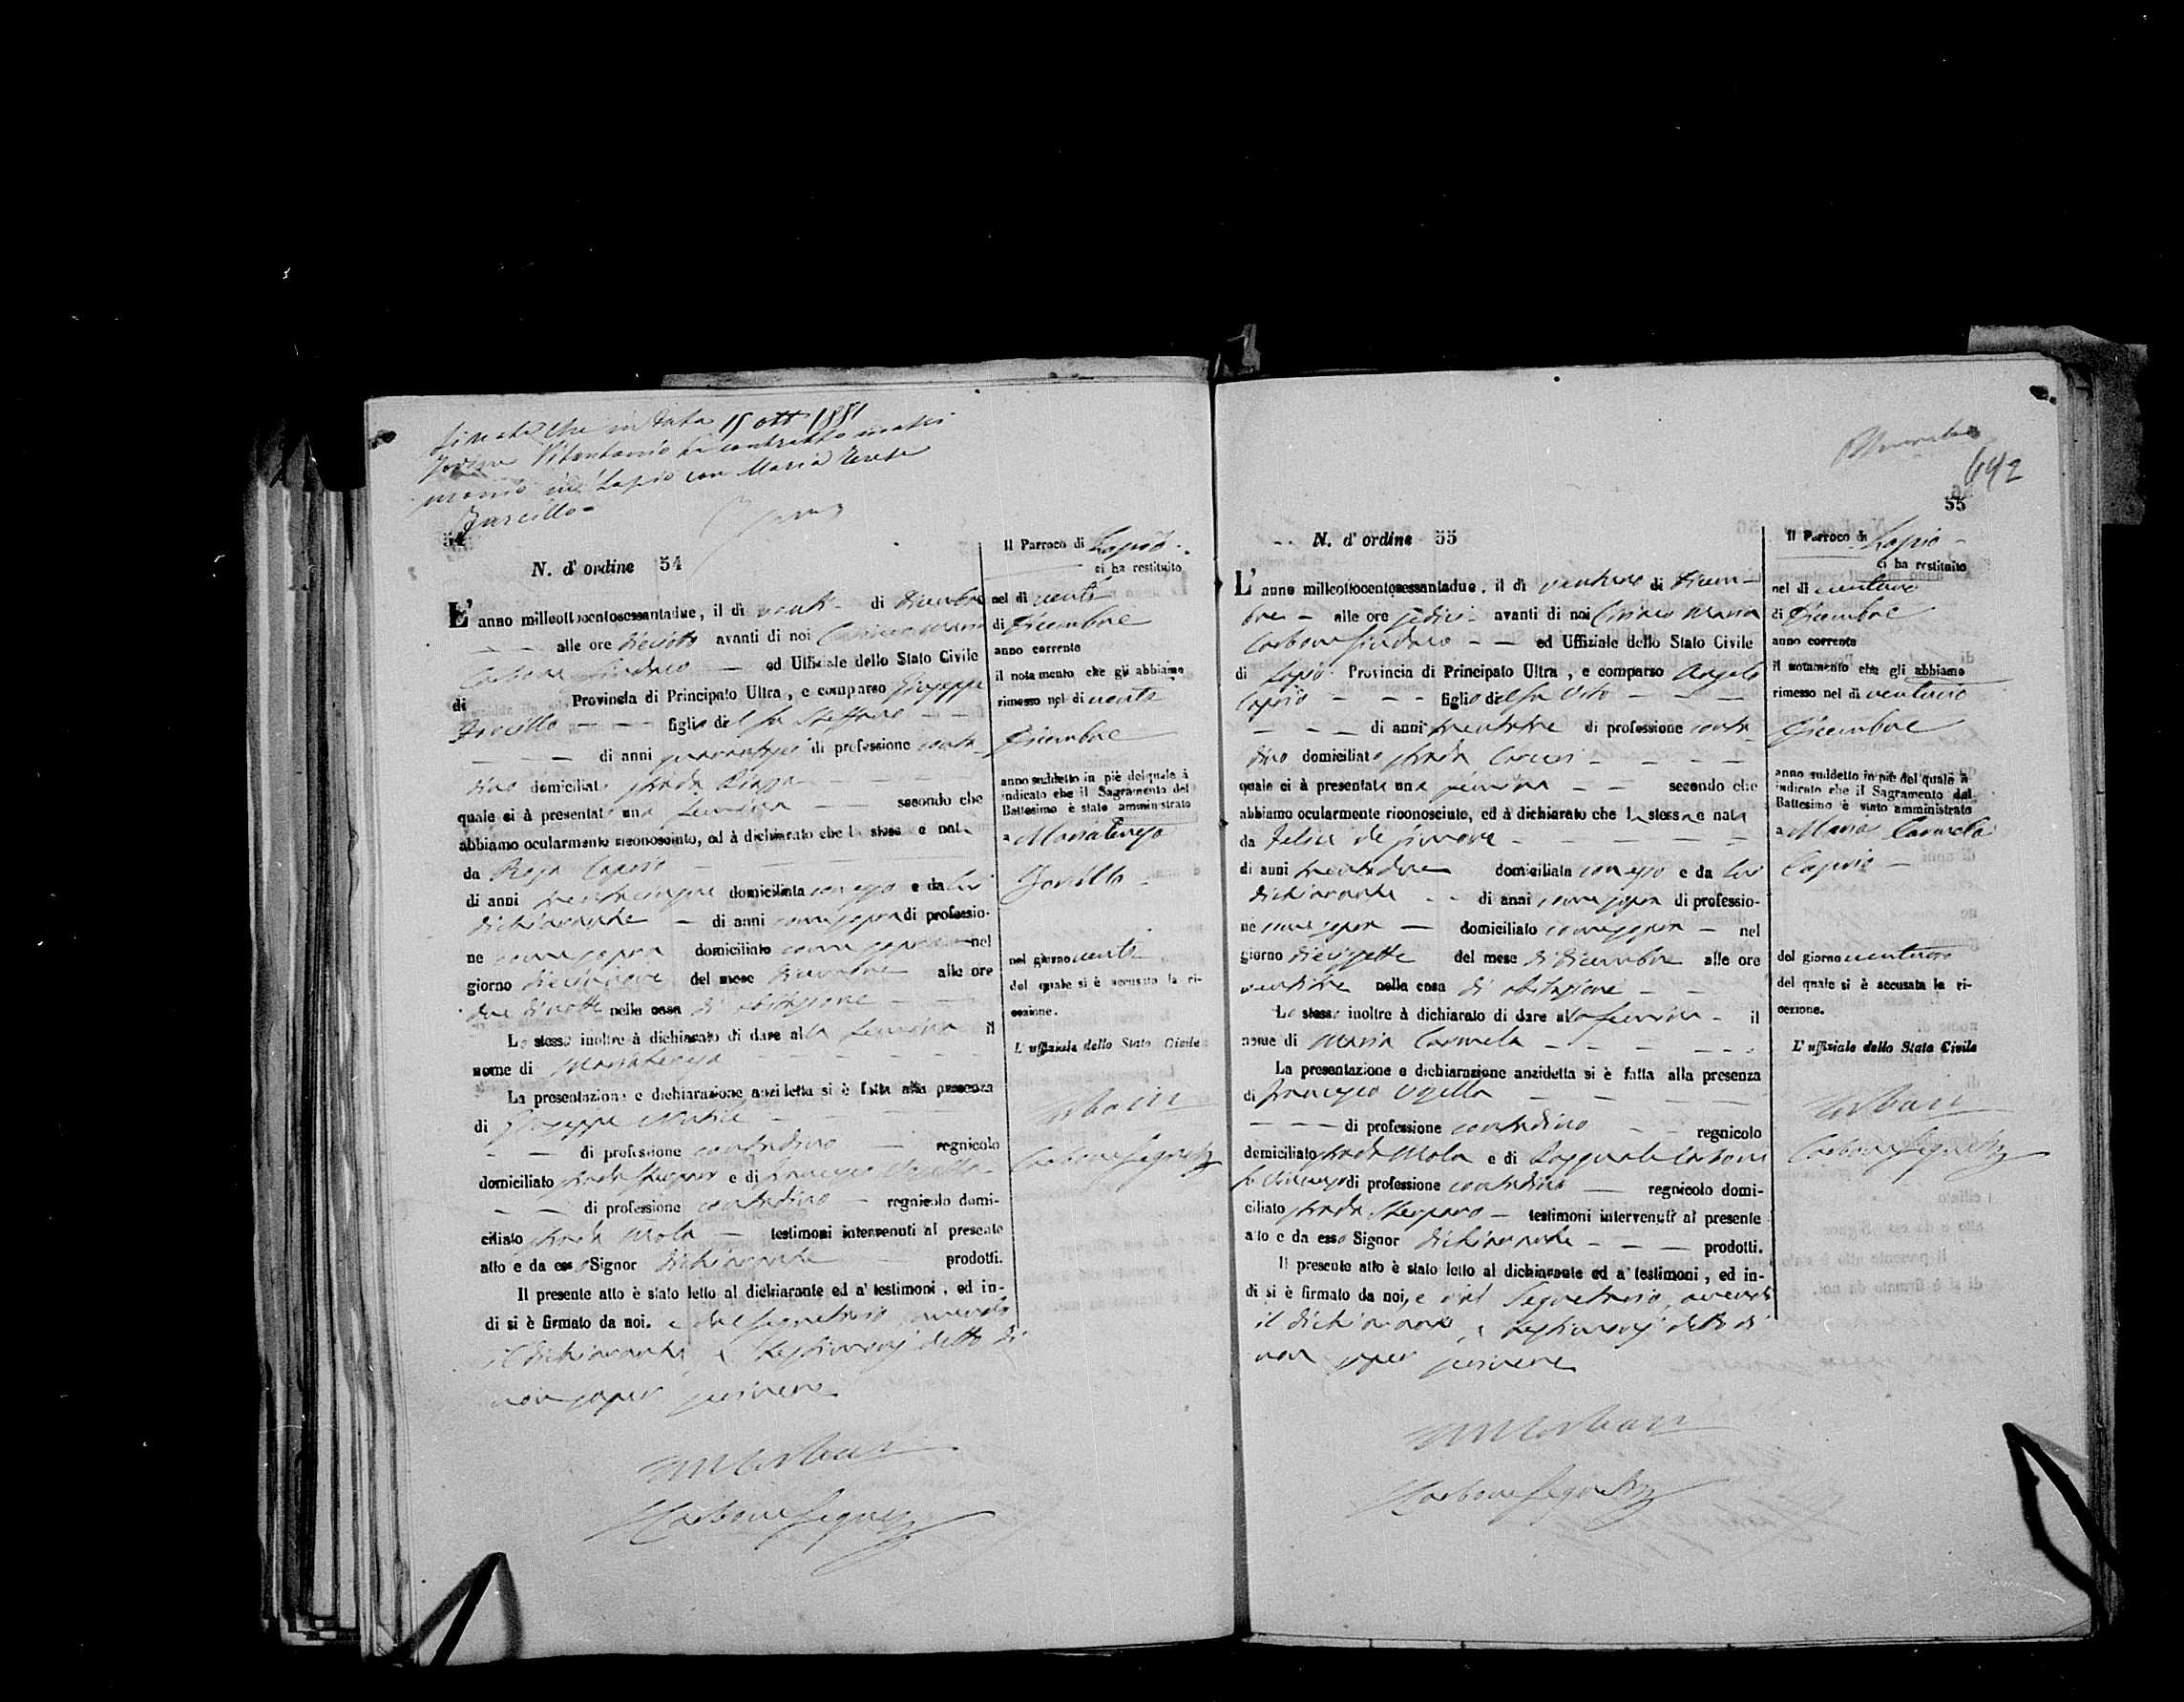 in data 15 ott 1881
Vitantonio ha contratto matri
monio in Lapio con Maria Teresa
54
N. d'ordine 54
L'anno milleottocentosessantadue, il dì venti di Dicembre
alle ore avanti di noi
Carbone Sindaco ed Uffiziale dello Stato Civile
di Provincia di Principato Ultra, e comparso Giuseppe
figlio del fu Steffano
di anni di professione conta
dino domiciliato strada Piazza
quale ci à presentato una femina secondo che
abbiamo ocularmente riconosciuto, ed à dichiarato che la stessa e nata
da Rosa Caposio
di anni trentacinque domiciliata con esso e da lui
dichiarante di anni come sopra di professio-
ne come sopra domiciliato come sopra nel
giorno diecinove del mese Dicembre alle ore
due di notte nella casa di abitazione
Lo stesso inoltre à dichiarato di dare alla femina il
nome di Mariateresa
La presentazione e dichiarazione anzidetta si è fatta alla presenza
di Giuseppe
di professione contadino regnicolo
domiciliato strada e di Francesco
di professione contadino regnicolo domi-
ciliato strada Mola testimoni intervenuti al presente
atto e da esso Signor dichiarante prodotti.
Il presente atto è stato letto al dichiarante ed a' testimoni, ed in-
di si è firmato da noi. e dal segretario, avendo
il dichiarante e testimonj detto di
non saper scrivere
Carbone Segret
Il Parroco di Lapio
ci ha restituito
nel dì venti
di Dicembre
anno corrente
il notamento che gli abbiamo
rimesso nel dì venti
Dicembre
anno suddetto in piè del quale à
indicato che il Sagramento del
Battesimo è stato amministrato
a Mariateresa
nel giorno venti
del quale si è accusata la ri-
cezione.
L'uffiziale dello Stato Civile
Carbone Segret
642
55
N. d'ordine 55
L'anno milleottocentosessantadue, il dì ventuno di Dicem-
bre alle ore sedici avanti di noi Ciriaco Maria
Carbone Sindaco ed Uffiziale dello Stato Civile
di Lapio Provincia di Principato Ultra, e comparso Angelo
figlio del fu Vito
di anni trentatre di professione conta
dino domiciliato strada
quale ci à presentata una femina secondo che
abbiamo ocularmente riconosciuto, ed à dichiarato che la stessa e nata
da Felicia de
di anni trentadue domiciliata con esso e da lui
dichiarante di anni come sopra di professio-
ne come sopra domiciliato come sopra nel
giorno diecissette del mese di Dicembre alle ore
ventitre nella casa di abitazione
Lo stesso inoltre à dichiarato di dare alla femina il
nome di Maria Carmela
La presentazione e dichiarazione anzidetta si è fatta alla presenza
di Francesco
di professione contadino regnicolo
domiciliato strada Mola e di Pasquale Carbone
di professione contadino regnicolo domi-
ciliato strada testimoni intervenuti al presente
atto e da esso Signor dichiarante prodotti.
Il presente atto è stato letto al dichiarante ed a' testimoni, ed in-
di si è firmato da noi, e dal Segretario, avendo
il dichiarante, e testimonj detto di
non saper scrivere
Carbone Segret
Il Parroco di Lapio
ci ha restituito
nel dì ventuno
di Dicembre
anno corrente
il notamento che gli abbiamo
rimesso nel dì ventuno
Dicembre
anno suddetto in piè del quale à
indicato che il Sagramento del
Battesimo è stato amministrato
a Maria Carmela
del giorno ventuno
del quale si è accusata la ri-
cezione.
L'uffiziale dello Stato Civile
Carbone Segret